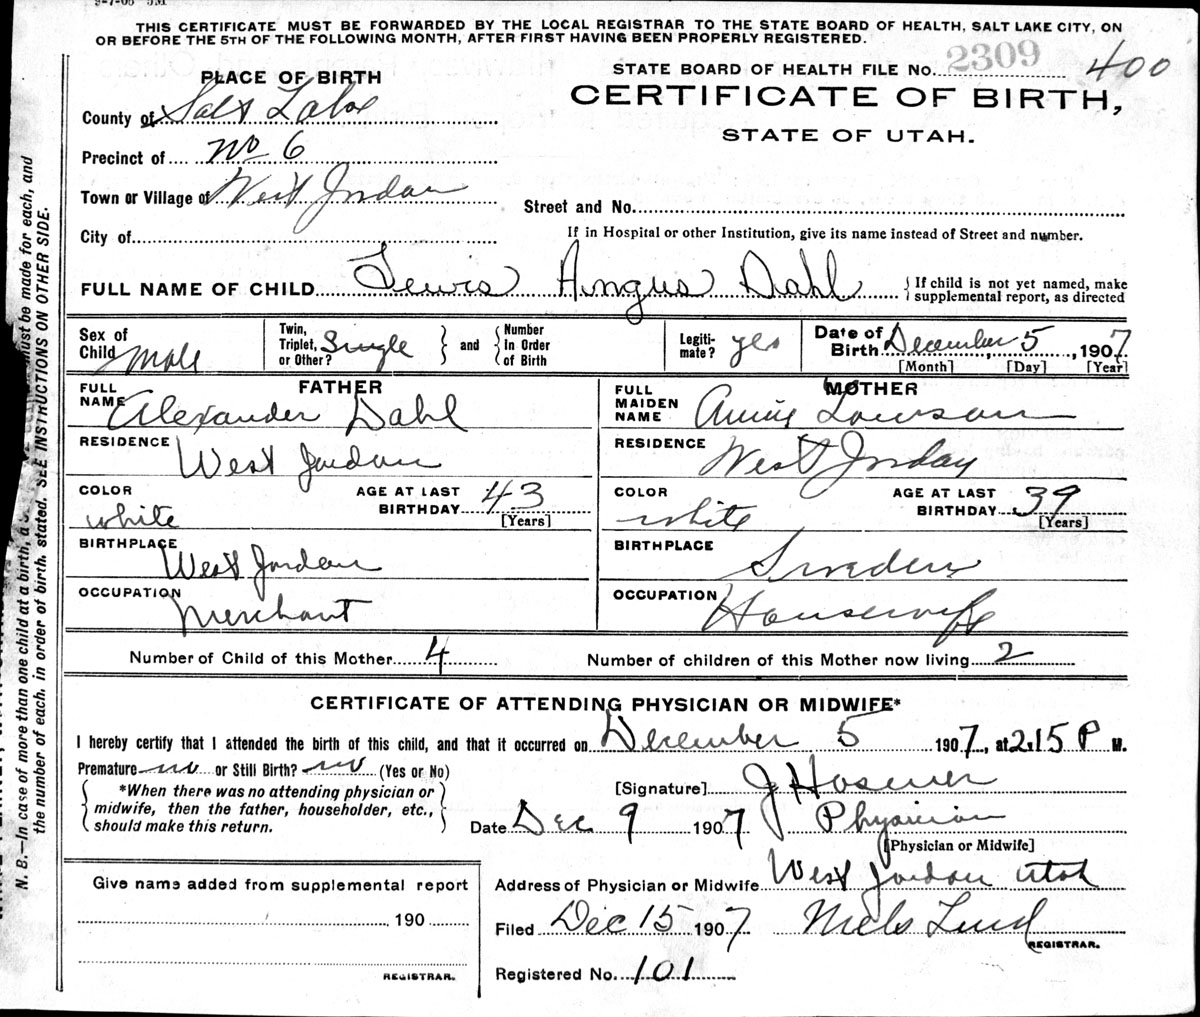 THIS CERTIFICATE MUST BE FORWARDED BY THE LOCAL REGISTRAR TO THE STATE BOARD OF HEALTH, SALT LAKE CITY, ON
OR BEFORE THE 5TH OF THE FOLLOWING MONTH, AFTER FIRST HAVING BEEN PROPERLY REGISTERED.
STATE BOARD OF HEALTH FILE No. 2309 400
CERTIFICATE OF BIRTH,
STATE OF UTAH.
PLACE OF BIRTH
County of Salt Lake
Precinct of No 6
Town or Village of West Jordan
Street and No.
City of
If in Hospital or other Institution, give its name instead of Street and number.
FULL NAME OF CHILD Lewis Angus Dahl
{ If child is not yet named, make
supplemental report, as directed
Sex of Child Male
Twin, Triplet, or Other? Single } and { Number In Order of Birth
Legiti- mate? yes
Date of Birth December 5, 1907
[Month] [Day] [Year]
FATHER
FULL NAME Alexander Dahl
RESIDENCE West Jordan
COLOR white
AGE AT LAST BIRTHDAY 43
[Years]
BIRTHPLACE West Jordan
OCCUPATION Merchant
MOTHER
FULL MAIDEN NAME Annie
RESIDENCE West Jorday
COLOR white
AGE AT LAST BIRTHDAY 39
[Years]
BIRTHPLACE Sweden
OCCUPATION Housewife
Number of Child of this Mother 4
Number of children of this Mother now living 2
CERTIFICATE OF ATTENDING PHYSICIAN OR MIDWIFE*
I hereby certify that I attended the birth of this child, and that it occurred on December 5 1907, at 2.15 P M.
Premature no or Still Birth? no (Yes or No)
*When there was no attending physician or
midwife, then the father, householder, etc.,
should make this return.
[Signature]
Date Dec 9 1907 Physician
[Physician or Midwife]
Give name added from supplemental report
, 190
REGISTRAR.
Address of Physician or Midwife West Jordan Utah
Filed Dec 15 1907 Niels Lind
REGISTRAR.
Registered No. 101
N. B.—In case of more than one child at a birth, a must be made for each, and
the number of each, in order of birth, stated. SEE INSTRUCTIONS ON OTHER SIDE.